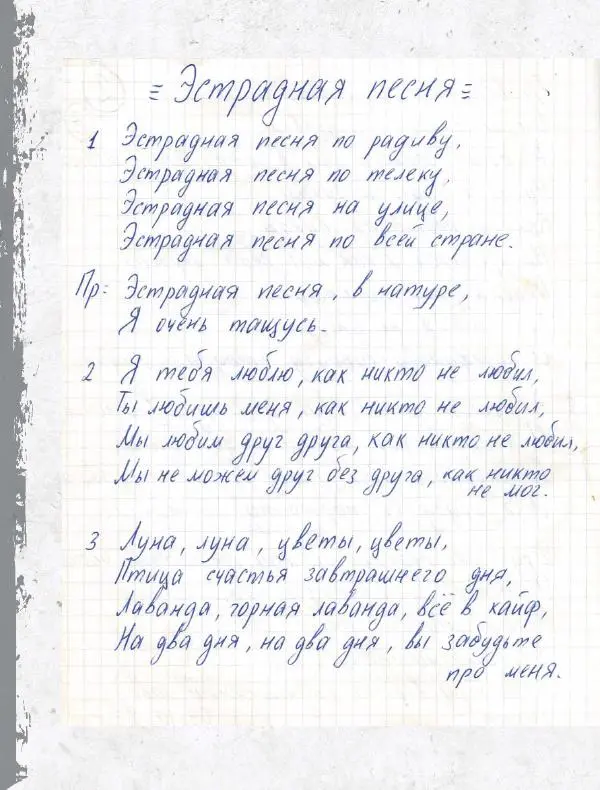 = Эстрадная песня =
1 Эстрадная песня по радиву,
Эстрадная песня по телеку,
Эстрадная песня на улице,
Эстрадная песня по всей стране.
Пр: Эстрадная песня, в натуре,
Я очень тащусь.
2 Я тебя люблю, как никто не любил,
Ты любишь меня, как никто не любил,
Мы любим друг друга, как никто не любил,
Мы не можем друг без друга, как никто
не мог.
3 Луна, луна, цветы, цветы,
Птица счастья завтрашнего дня,
Лаванда, горная лаванда, всё в кайф,
На два дня, на два дня, вы забудьте
про меня.